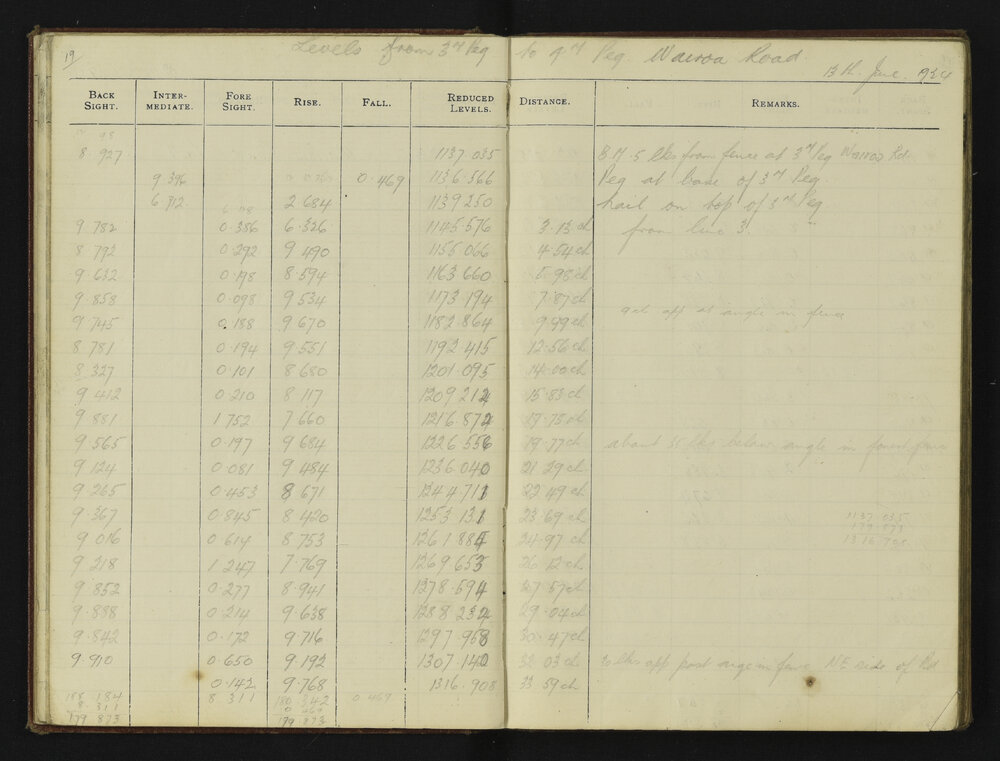 19
Levels from 3rd Peg to 9th Peg. Wairoa Road.
13th June 1924
BACK SIGHT. INTER-MEDIATE. FORE SIGHT. RISE. FALL. REDUCED LEVELS. DISTANCE. REMARKS.
8.927 1137.035 lks from fence at 3rd Peg Wairoa Rd.
9.396 0.469 1136.566 Peg at base of 3rd Peg.
6.712 2.684 1139.250 nail on top of 3rd Peg
9.782 0.386 6.326 1145.576 3.13 ch from line 3.
8.792 0.292 9.490 1155.066 4.54 ch
9.632 0.198 8.594 1163.660 5.95 ch
9.858 0.098 9.534 1173.194 7.87 ch
9.745 0.188 9.670 1182.864 9.99 ch opp at angle in fence
8.781 0.194 9.551 1192.415 12.56 ch
8.327 0.101 8.680 1201.095 14.00 ch
9.412 0.210 8.117 1209.212 15.83 ch
9.881 1.752 7.660 1216.872
9.565 0.197 9.684 1226.556 19.77 ch about lks below angle in fence
9.124 0.081 9.484 1236.040 21.29 ch
9.265 0.453 8.671 1244.711 22.49 ch
9.367 0.845 8.420 1253.131 23.69 ch 1137.035
179.873
9.016 0.614 8.753 1261.884 24.97 ch 1316.908
9.218 1.247 7.769 1269.653 26.12 ch
9.852 0.277 8.941 1278.594 27.57 ch
9.888 0.214 9.638 1288.232 29.04 ch
9.842 0.172 9.716 1297.958 30.47 ch
9.910 0.650 9.192 1307.140 32.03 ch lks opp post in fence NE side of Rd
0.142 9.768 1316.908 33.59 ch
188.184 8.311 180.342 0.469
8.311 0.469
179.873 179.873